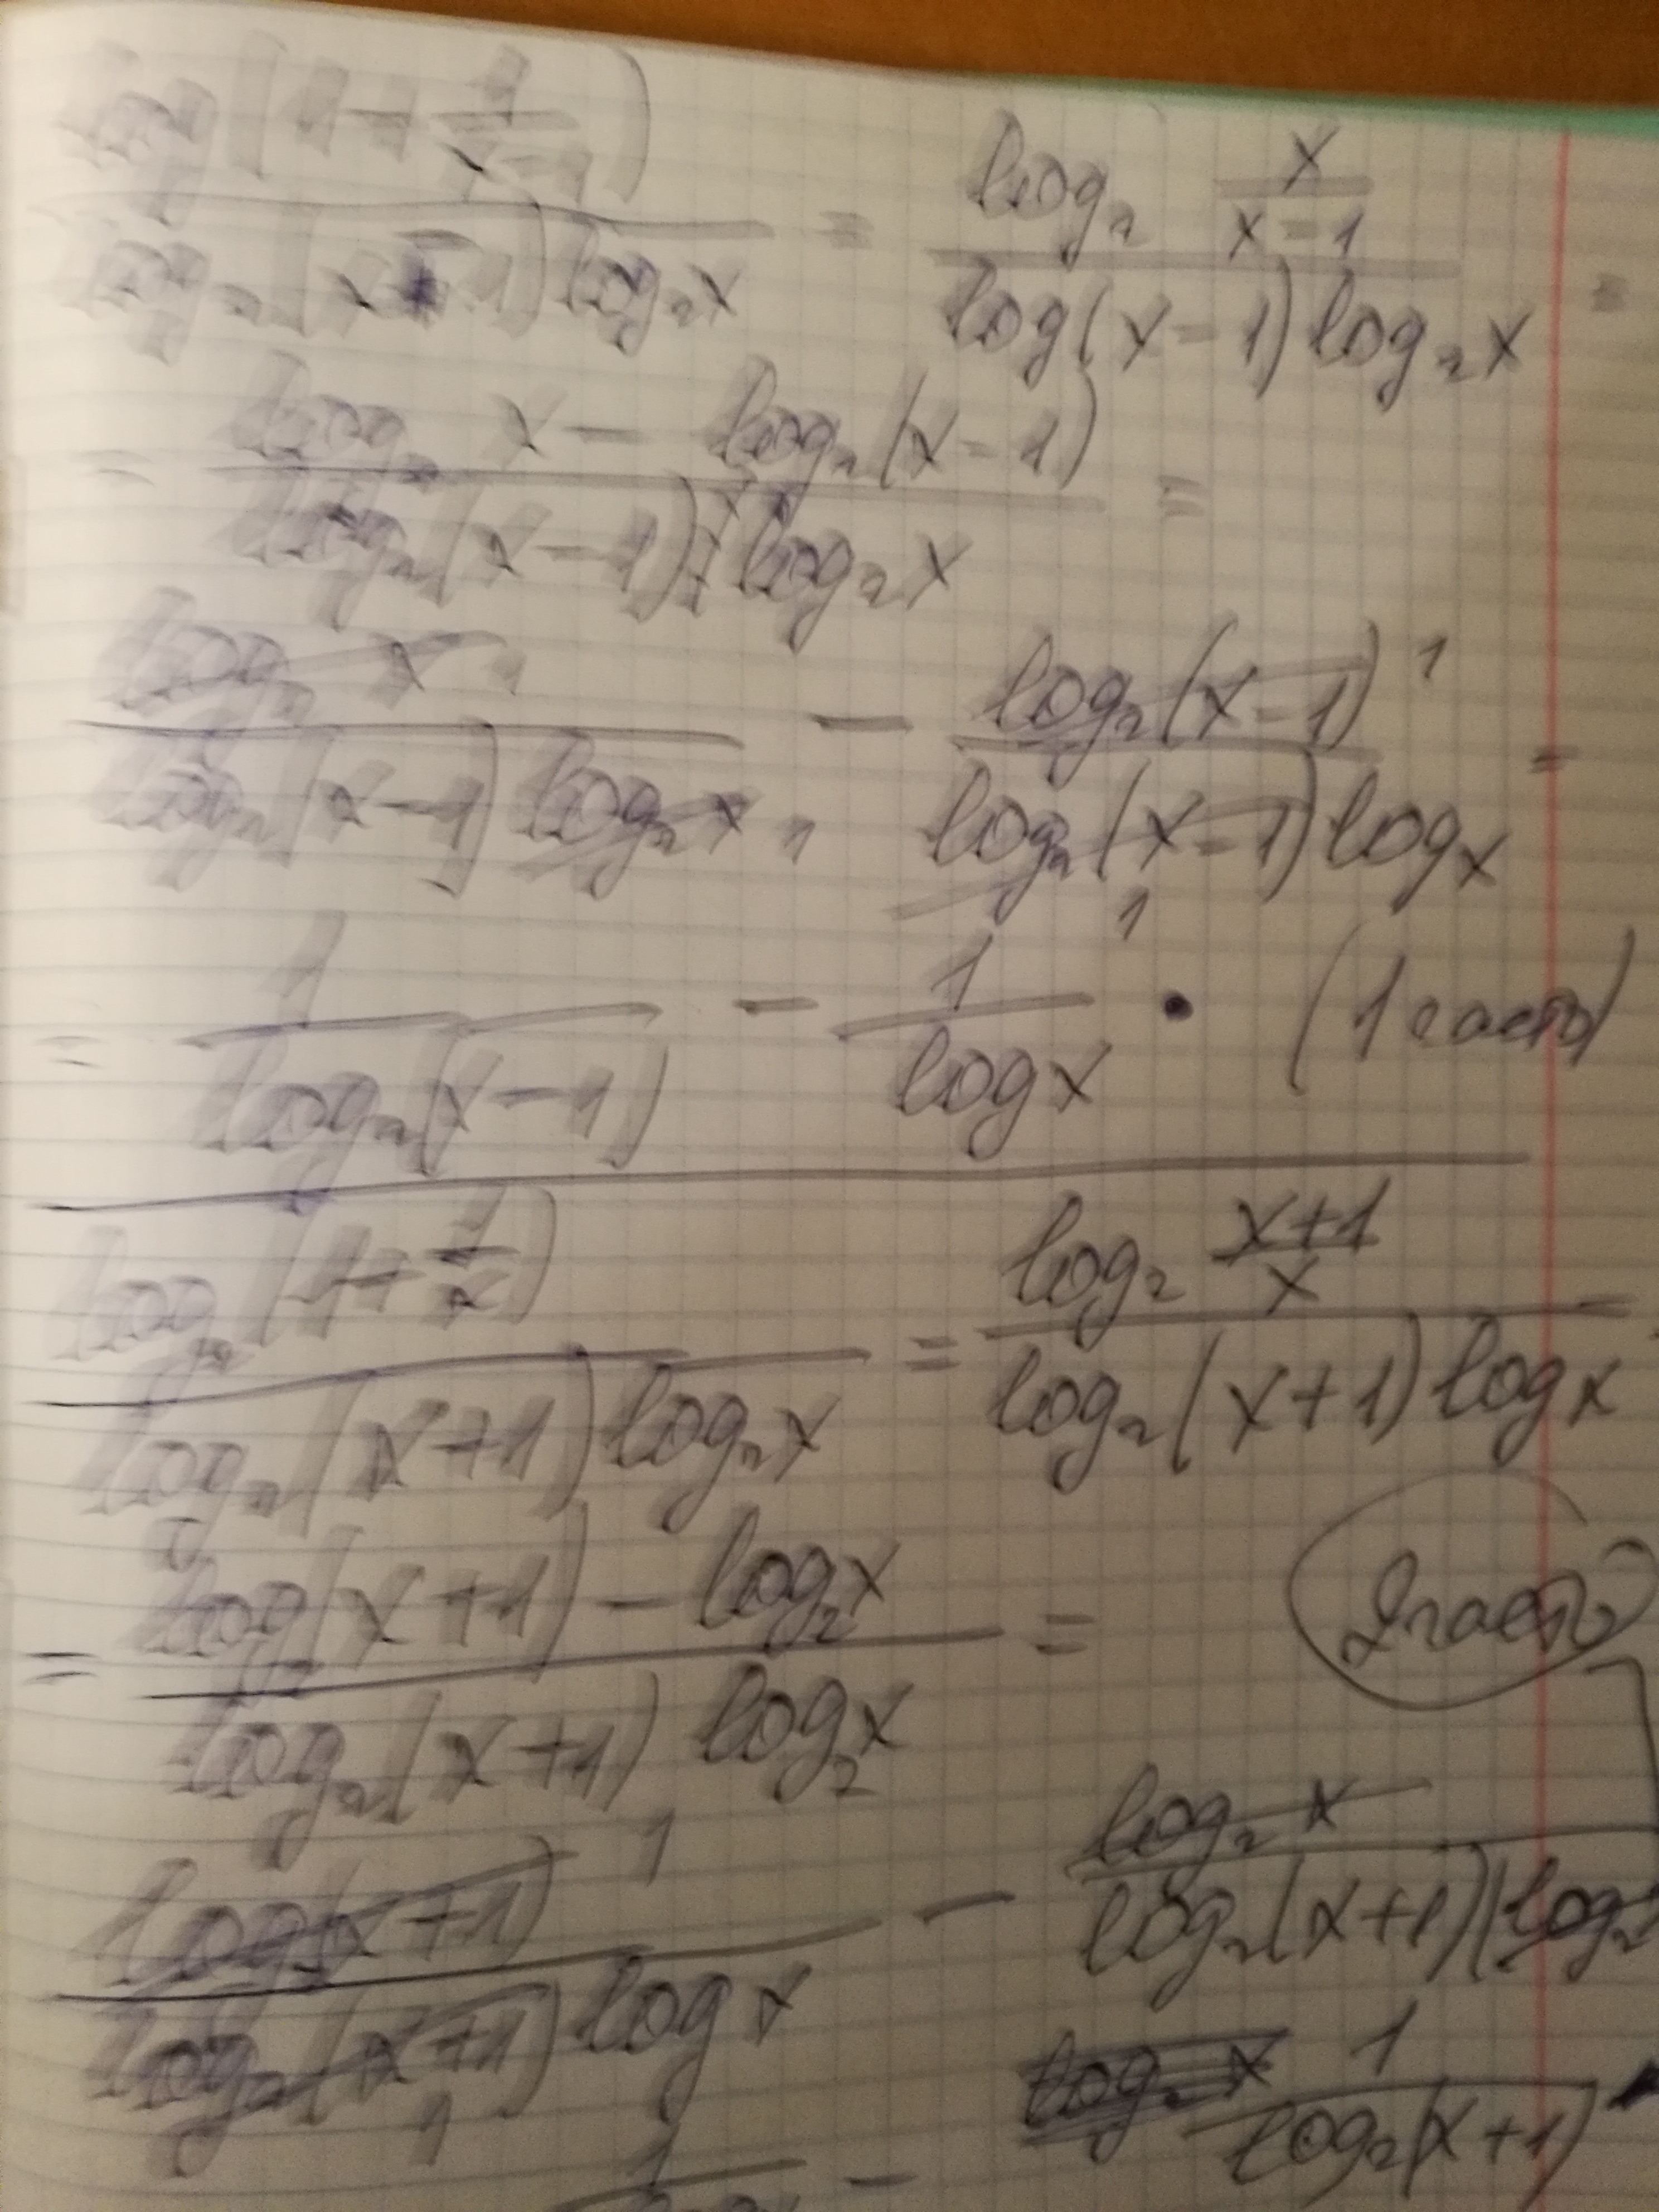 log₂(1+1/(x-1)) / (log₂(x-1) log₂x) = log₂ x/(x-1) / (log(x-1) log₂x) =
= (log₂ x - log₂(x-1)) / (log₂(x-1) log₂x) =
log₂ x 1 / (log₂(x-1) log₂x 1) - log₂(x-1) 1 / (log₂(x-1) 1 logx) =
= 1 / log₂(x-1) - 1 / logx (1 часть)
log₂(1+1/x) / (log₂(x+1) log₂x) = log₂ (x+1)/x / (log₂(x+1) logx)
= (log₂(x+1) - log₂x) / (log₂(x+1) log₂x) = 2 часть
log₂(x+1) 1 / (log₂(x+1) 1 logx) - log₂x / (log₂(x+1) log₂
1 - 1 / log₂(x+1)